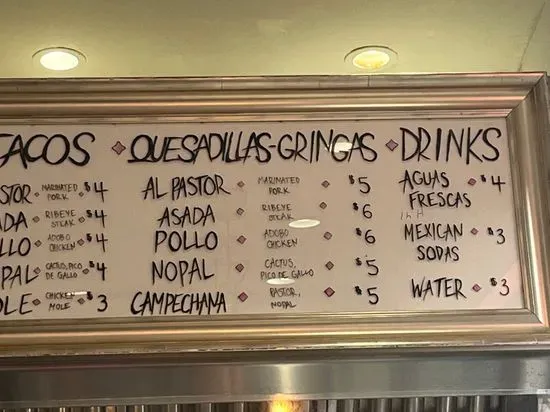 TACOS ◆ QUESADILLAS-GRINGAS ◆ DRINKS
STOR MARINATED PORK ◆ $4
ADA ◆ RIBEYE STEAK ◆ $4
LLO ◆ ADOBO CHICKEN ◆ $4
PAL ◆ CACTUS, PICO DE GALLO ◆ $4
OLE ◆ CHICKEN MOLE ◆ $3
AL PASTOR ◆ MARINATED PORK ◆ $5
ASADA ◆ RIBEYE STEAK ◆ $6
POLLO ◆ ADOBO CHICKEN ◆ $6
NOPAL ◆ CACTUS, PICO DE GALLO ◆ $5
CAMPECHANA ◆ PASTOR, NOPAL ◆ $5
AGUAS FRESCAS ◆ $4
MEXICAN SODAS ◆ $3
WATER ◆ $3